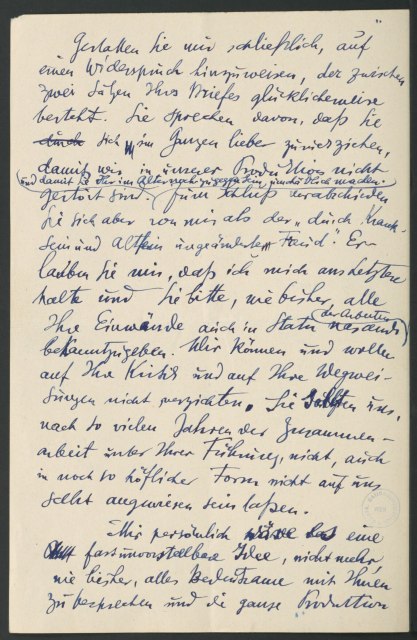 Gestatten Sie mir schließlich, auf
einen Widerspruch hinzuweisen, der zwischen
zwei Sätzen Ihres Briefes glücklicherweise
besteht. Sie sprechen davon, daß Sie
sich im Ganzen lieber zurückziehen,
damit wir in unserer Produktion nicht
und damit Sie Ihr im Alter
gestört sind. Zum Schluß verabschieden
Sie sich aber von mir als der „durch Krank-
sein und Altsein ungeänderte Freund". Er-
lauben Sie mir, daß ich mich ans letztere
halte und Sie bitte, wie bisher, alle
der Arbeiten
Ihre Einwände auch in Statu nascendi
bekanntzugeben. Wir können und wollen
auf Ihre Kritik und auf Ihre Wegwei-
sungen nicht verzichten. Sie sollten uns,
nach so vielen Jahren der Zusammen-
arbeit unter Ihrer Führung, nicht, auch
in noch so höflicher Form nicht auf uns
selbst angewiesen sein laßen.
Mir persönlich wäre das eine
fast unvorstellbare Idee, nicht mehr,
wie bisher, alles Bedeutsame mit Ihnen
zu besprechen und die ganze Produktion